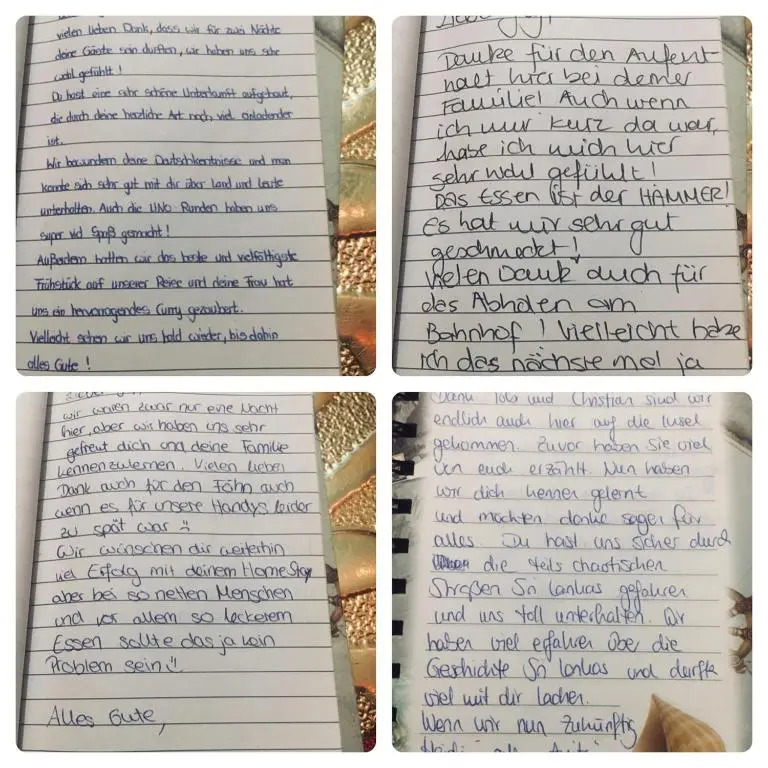 vielen lieben Dank, dass wir für zwei Nächte
deine Gäste sein durften, wir haben uns sehr
wohl gefühlt!
Du hast eine sehr schöne Unterkunft aufgebaut,
die durch deine herzliche Art noch viel einladender
ist.
Wir bewundern deine Deutschkenntnisse und man
konnte sich sehr gut mit dir über Land und Leute
unterhalten. Auch die UNO-Runden haben uns
super viel Spaß gemacht!
Außerdem hatten wir das beste und vielfältigste
Frühstück auf unserer Reise und deine Frau hat
uns ein hervorragendes Curry gezaubert.
Vielleicht sehen wir uns bald wieder, bis dahin
alles Gute!
Danke für den Aufent
halt hier bei deiner
Familie! Auch wenn
ich nur kurz da war,
habe ich mich hier
sehr wohl gefühlt!
Das Essen ist der HAMMER!
Es hat mir sehr gut
geschmeckt!
Vielen Dank auch für
das Abholen am
Bahnhof! Vielleicht habe
ich das nächste mal ja
wir waren zwar nur eine Nacht
hier, aber wir haben uns sehr
gefreut dich und deine Familie
kennenzulernen. Vielen lieben
Dank auch für den Föhn auch
wenn es für unsere Handys leider
zu spät war
Wir wünschen dir weiterhin
viel Erfolg mit deinem HomeStay
aber bei so netten Menschen
und vor allem so leckerem
Essen sollte das ja kein
Problem sein
Alles Gute,
Dank und Christian sind wir
endlich auch hier auf die Insel
gekommen. Zuvor haben Sie viel
von euch erzählt. Nun haben
wir dich kennen gelernt
und möchten danke sagen für
alles. Du hast uns sicher durch
die teils chaotischen
Straßen Sri Lankas gefahren
und uns toll unterhalten. Wir
haben viel erfahren über die
Geschichte Sri Lankas und durften
viel mit dir lachen.
Wenn wir nun zukünftig